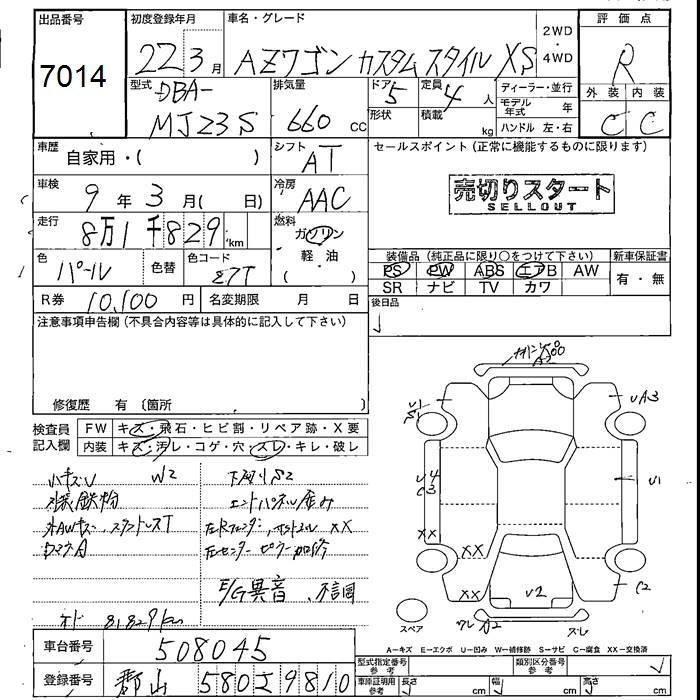 出品番号
7014
初度登録年月
22 3月
車名・グレード
AZワゴン カスタム スタイル XS
2WD
4WD
評価点
R
外装 内装
C C
型式
DBA-
MJ23S
排気量
660 cc
ドア 5
定員 4人
形状
積載 kg
ディーラー・並行
モデル年式 年
ハンドル 左・右
車歴
自家用・( )
シフト
AT
セールスポイント(正常に機能するものに限ります)
売切りスタート
SELLOUT
車検
9年3月( 日)
冷房
AAC
走行
8万1千829km
燃料
ガソリン
軽油
( )
色
パール
色替
色コード
Z7T
装備品(純正品に限り○をつけて下さい)
新車保証書
PS PW ABS エアB AW
SR ナビ TV カワ
有・無
R券 10,100円
名変期限 月 日
後日品
注意事項申告欄(不具合内容等は具体的に記入して下さい)
修復歴 有 〔箇所 〕
検査員記入欄
FW キズ・飛石・ヒビ割・リペア跡・X要
内装 キズ・汚レ・コゲ・穴・スレ・キレ・破レ
小キズU W2
下廻りS2
外装鉄粉
エンドパネル歪み
XX
E/G異音、不調
81829km
A3
U1
U4
C3
U1
XX
XX
XX
XX
U2
C2
スペア
A-キズ E-エクボ U-凹み W-補修跡 S-サビ C-腐食 XX-交換済
車台番号
508045
型式指定番号
参考
類別区分番号
参考
登録番号
郡山 580 ら 9810
車庫証明用
参考
長さ cm
幅 cm
高さ cm